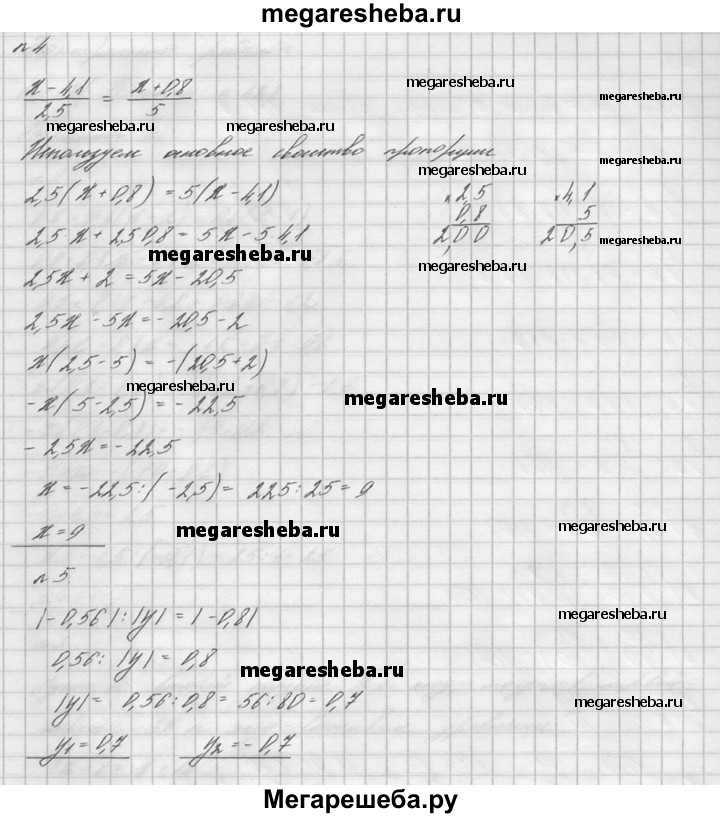 megaresheba.ru
n 4.
x - 4,1 / 2,5 = x + 0,8 / 5
megaresheba.ru megaresheba.ru
megaresheba.ru megaresheba.ru
Используем основное свойство пропорции
megaresheba.ru
megaresheba.ru
2,5(x + 0,8) = 5(x - 4,1)
× 2,5
0,8
2,00
× 4,1
5
20,5
2,5 x + 2,5 0,8 = 5x - 5 4,1
megaresheba.ru
megaresheba.ru
megaresheba.ru
2,5x + 2 = 5x - 20,5
2,5x - 5x = - 20,5 - 2
x(2,5 - 5) = -(20,5 + 2)
megaresheba.ru
megaresheba.ru
-x(5 - 2,5) = - 22,5
- 2,5x = - 22,5
x = - 22,5 : (- 2,5) = 225 : 25 = 9
x = 9
megaresheba.ru
megaresheba.ru
n 5.
|- 0,56| : |y| = |- 0,8|
megaresheba.ru
0,56 : |y| = 0,8
megaresheba.ru
|y| = 0,56 : 0,8 = 56 : 80 = 0,7
megaresheba.ru
y1 = 0,7 y2 = - 0,7
Мегарешеба.ру